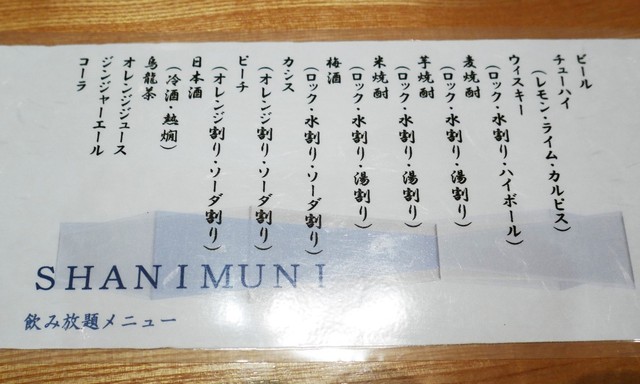 ビール
チューハイ
(レモン・ライム・カルピス)
ウィスキー
(ロック・水割り・ハイボール)
麦焼酎
(ロック・水割り・湯割り)
芋焼酎
(ロック・水割り・湯割り)
米焼酎
(ロック・水割り・湯割り)
梅酒
(ロック・水割り・ソーダ割り)
カシス
(オレンジ割り・ソーダ割り)
ピーチ
(オレンジ割り・ソーダ割り)
日本酒
(冷酒・熱燗)
烏龍茶
オレンジジュース
ジンジャーエール
コーラ
SHANIMUNI
飲み放題メニュー